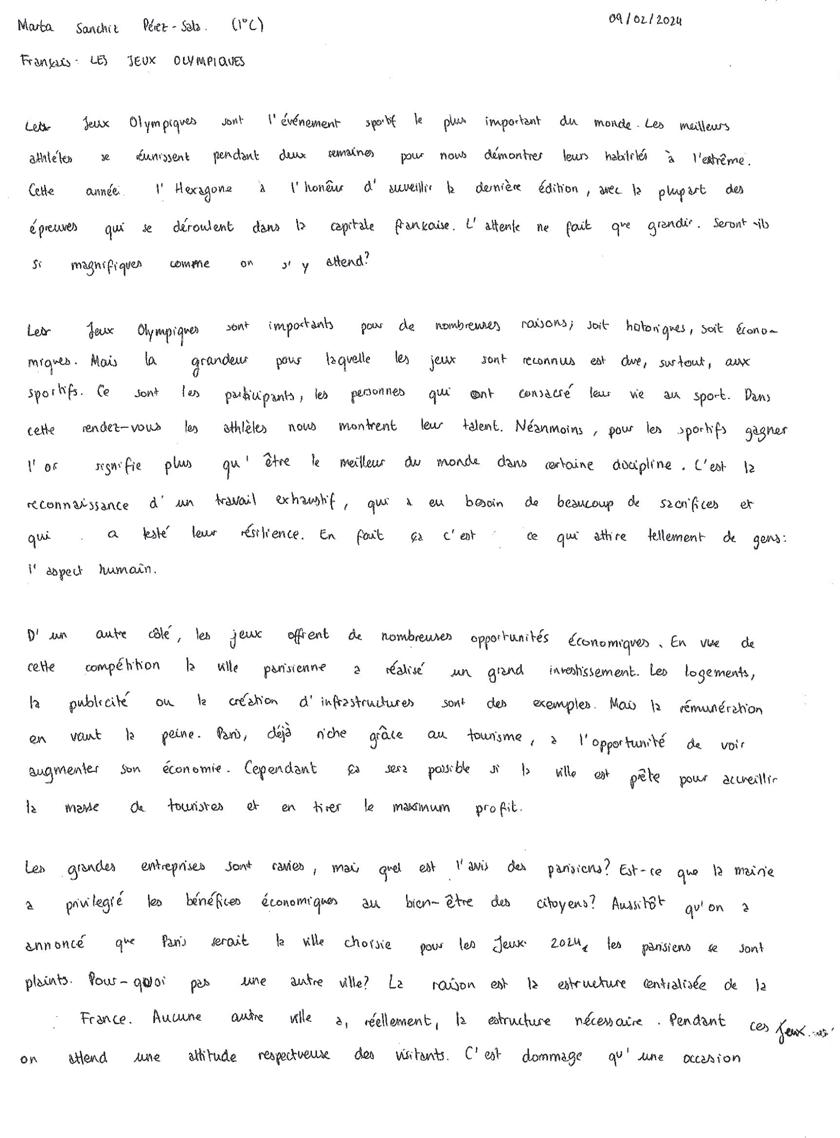 Marta Sanchiz Pérez-Sala. (1ºC)
09/02/2024
Français: LES JEUX OLYMPIQUES
Les Jeux Olympiques sont l'événement sportif le plus important du monde. Les meilleurs
athlètes se réunissent pendant deux semaines pour nous démontrer leurs habilités à l'extrême.
Cette année l'Hexagone a l'honêur d'auveillir la dernière édition, avec la plupart des
épreuves qui se déroulent dans la capitale française. L'attente ne fait que grandir. Seront-ils
si magnifiques comme on s'y attend?
Les Jeux Olympiques sont importants pour de nombreuses raisons; soit historiques, soit écono-
miques. Mais la grandeur pour laquelle les jeux sont reconnus est due, surtout, aux
sportifs. Ce sont les participants, les personnes qui ont consacré leur vie au sport. Dans
cette rendez-vous les athlèles nous montrent leur talent. Néanmoins, pour les sportifs gagner
l'or signifie plus qu'être le meilleur du monde dans certaine discipline. C'est la
reconnaissance d'un travail exhaustif, qui a eu besoin de beaucoup de sacrifices et
qui a testé leur résilience. En fait ça c'est ce qui attire tellement de gens:
l'aspect humain.
D'un autre côté, les jeux offrent de nombreuses opportunités économiques. En vue de
cette compétition la ville parisienne a réalisé un grand investissement. Les logements,
la publicité ou la création d'infrastructures sont des exemples. Mais la rémunération
en vaut la peine. Paris, déjà riche grâce au tourisme, a l'opportunité de voir
augmenter son économie. Cependant ça sera possible si la ville est prête pour accueillir
la masse de touristes et en tirer le maximum profit.
Les grandes entreprises sont ravies, mais quel est l'avis des parisiens? Est-ce que la mairie
a privilegié les bénéfices économiques au bien-être des citoyens? Aussitôt qu'on a
annoncé que Paris serait la ville choisie pour les Jeux 2024, les parisiens se sont
plaints. Pour-quoi pas une autre ville? La raison est la estructure centralisée de la
France. Aucune autre ville a, réellement, la estructure nécessaire. Pendant ces Jeux
on attend une attitude respectueuse des visitants. C'est dommage qu'une occasion